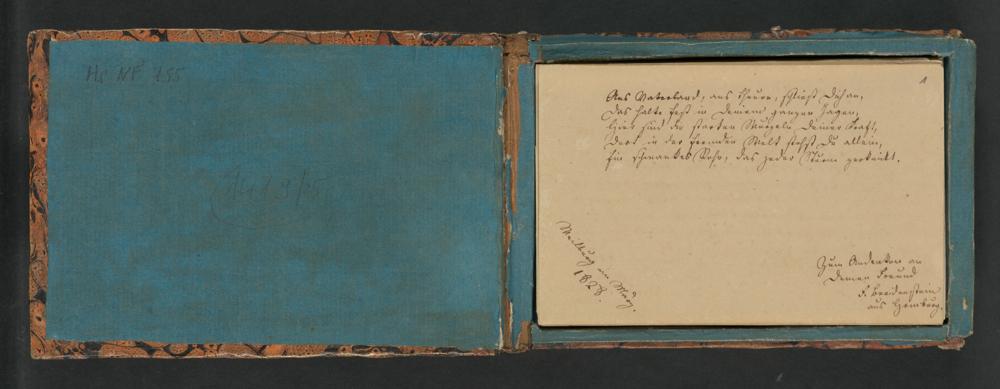 Hs NF 795
1
Ans Vaterland, ans theure, schließ Dich an,
Das halte fest in Deinem ganzen Herzen,
Hier sind die starken Wurzeln Deiner Kraft,
Dort in der fremden Welt stehst Du allein,
Ein schwankes Rohr, das jeder Sturm zerknickt.
Weilburg im März.
1828.
Zum Andenken an
Deinen Freund
F. Breidenstein
aus Homburg.